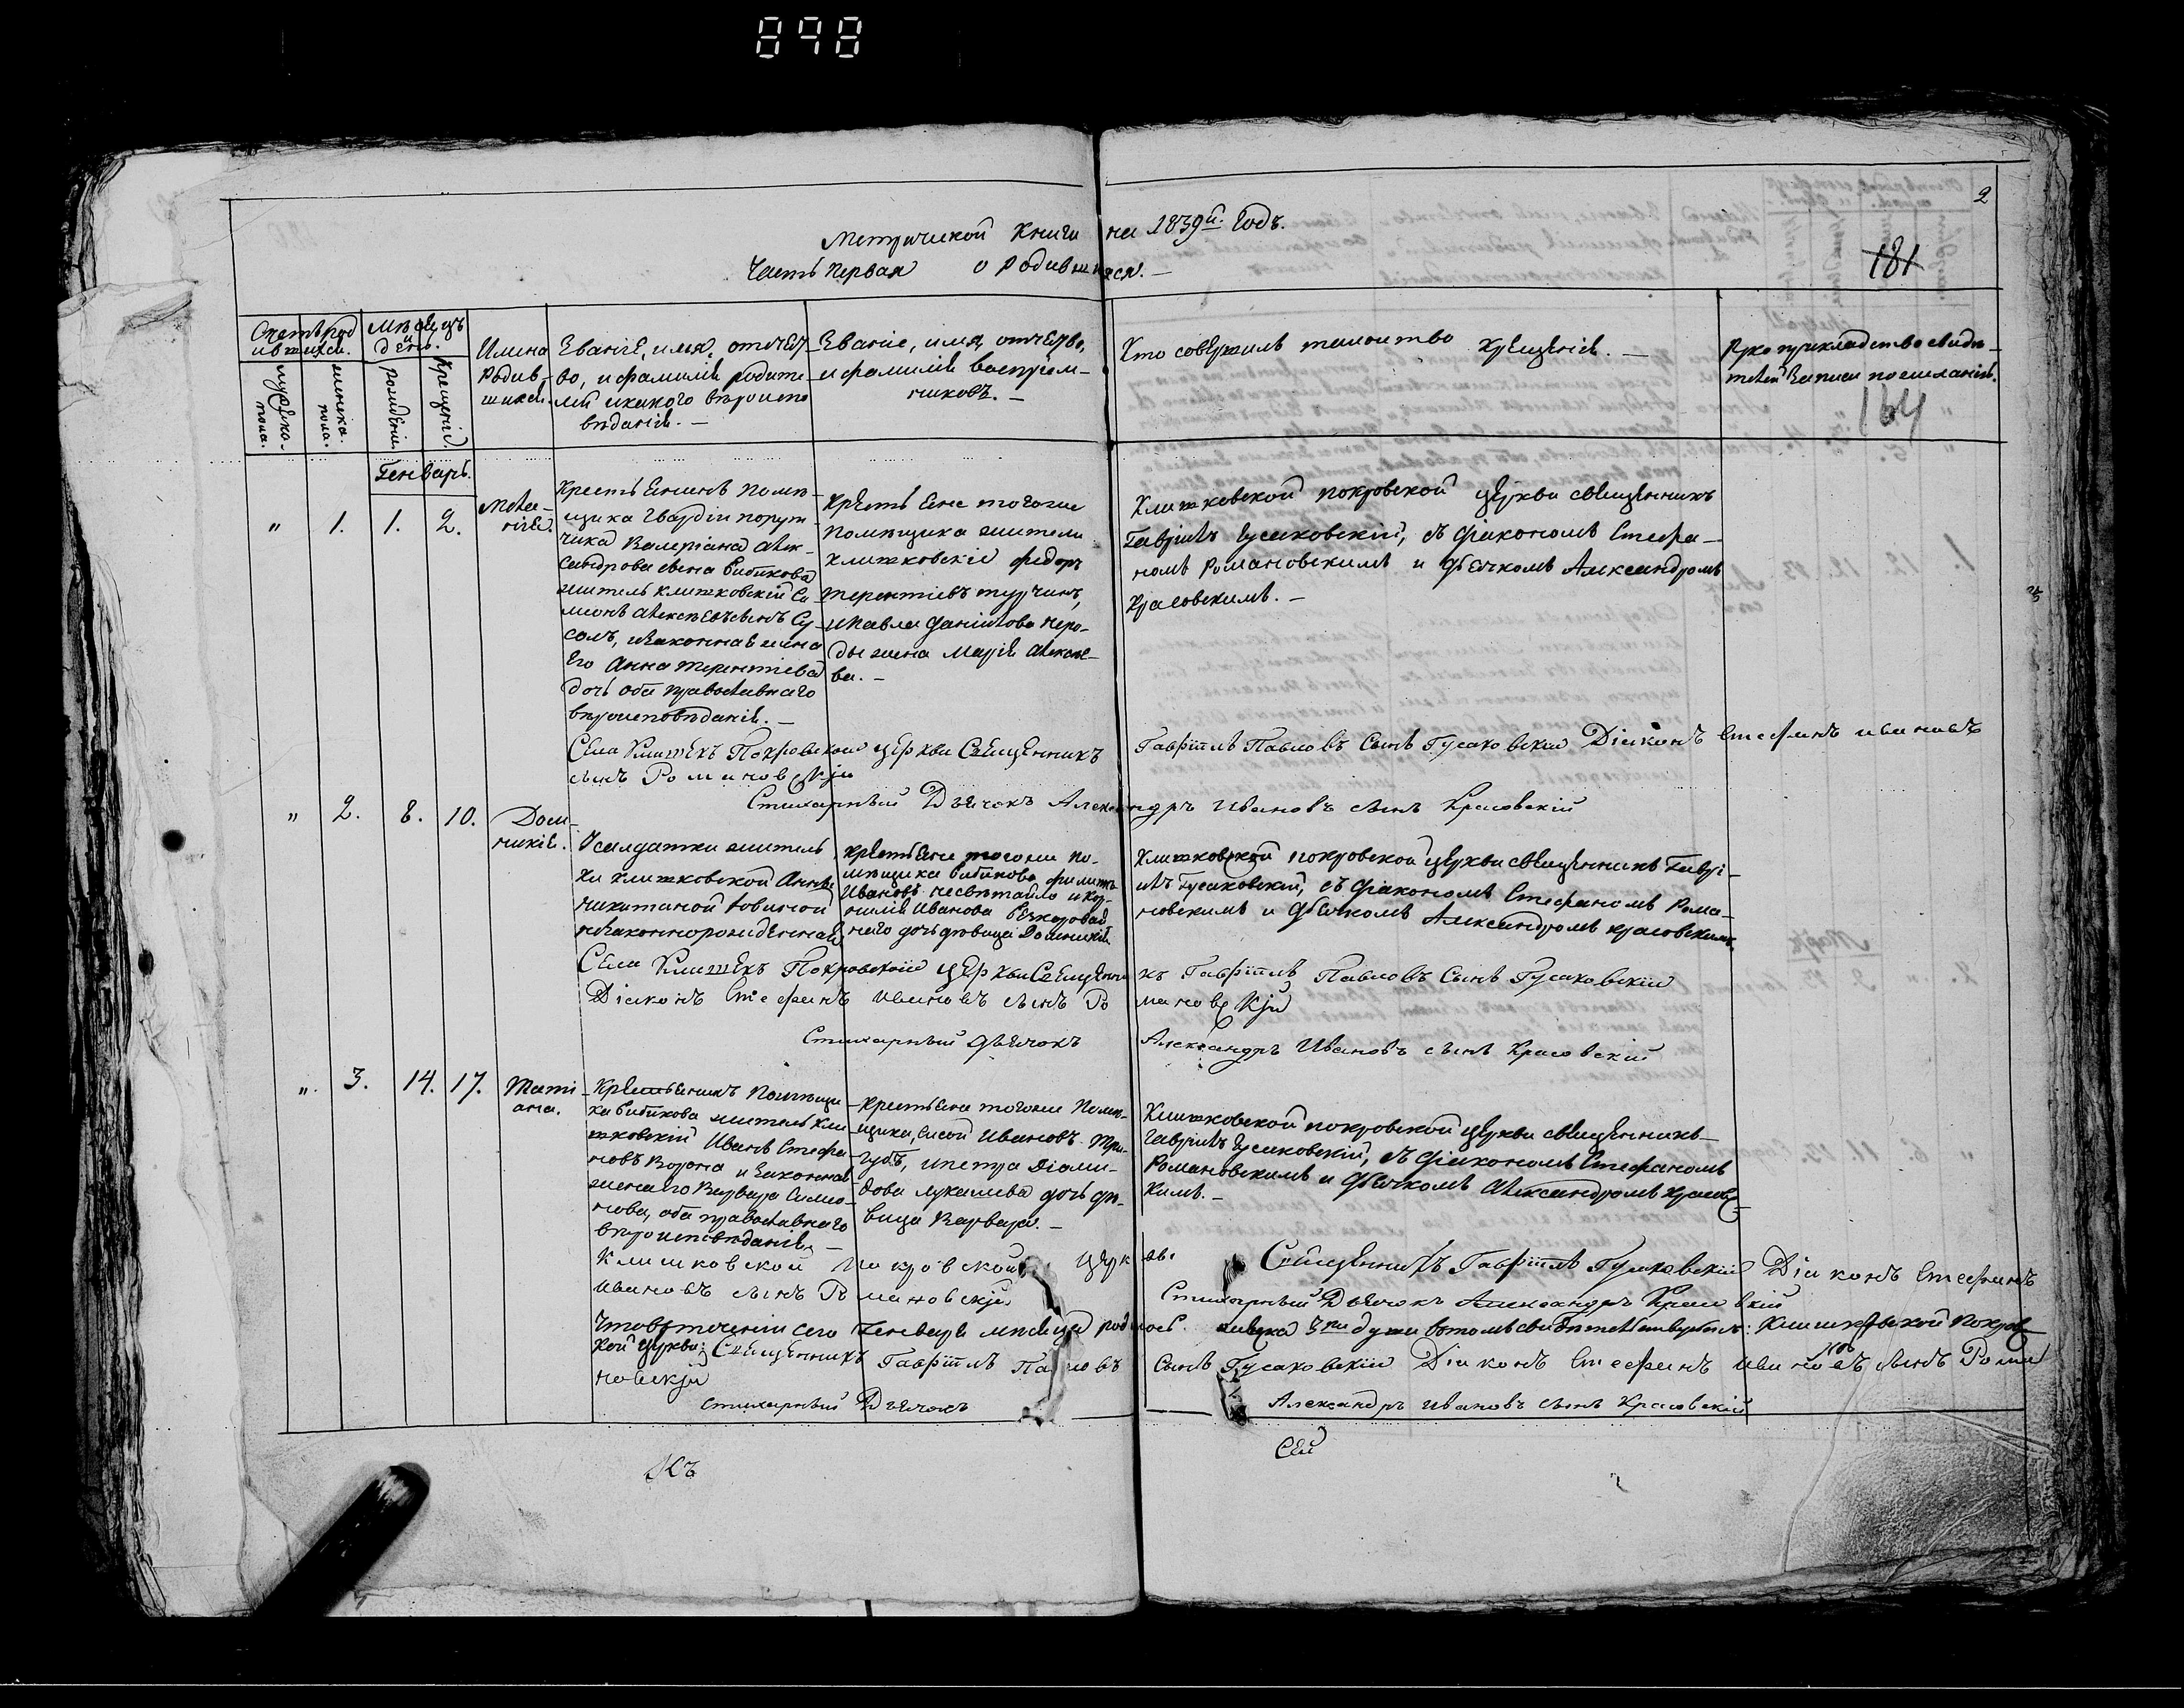 898
2
Метрической Книги на 1839й Годъ.
Часть Первая о Родившихся. —
181
Счетъ род
ившихся.
Мѣсяцъ
и
день.
мужеска
пола.
женска
пола.
рожденія.
Крещенія.
Имяна
Родив-
шихся.
Званіе, имя, отчест-
во, и фамилія родите-
лей икакого вѣроиспо
вѣданія. —
Званіе, имя, отчество,
и фамилія воспріем-
никовъ. —
Кто совершилъ таинство крещенія. —
Рукоприкладство свидѣ-
телей записи пожеланію.
164
Генварь.
" 1. 1. 2.
Мела-
нія.
Крестьянинъ помѣ-
щика Гвардіи порут-
чика Валеріана Алек-
сандрова сына Бибикова
житель клишковскій Си
меонъ Алексѣевъ сынъ Су-
солъ, изаконная жена
его Анна терентіева
дочь оба православнаго
вѣроисповѣданія. —
крестьяне тогоже
помѣщика жители
клишковскіе федоръ
терентіевъ турчинъ,
ипавла даніилова
жена Марія Алексѣе-
ва. —
Клишковской покровской церкви священникъ
Гавріилъ Гусаковскій, съ діакономъ Стефа-
номъ Романовскимъ и дьячкомъ Александромъ
Красовскимъ. —
Села Клишекъ Покровской церкви Священникъ Гавріилъ Павловъ Сынъ Гусаковскій Діяконъ Стефанъ ивановъ
сынъ Романовскій
Стихарный Дьячокъ Александръ Ивановъ сынъ Красовскій
" 2. 8. 10.
Дом-
никія.
Усолдатки житель
ки клишковской Анны
никитиной
незаконнорожденная
крестьяне тогоже по-
мѣщика бибикова филипъ
Ивановъ несвѣтайло и Кор-
нилія Иванова безкоровай
наго дочь дѣвица Домникія.
Клишковской покровской церкви священникъ Гаврі-
илъ Гусаковскій, съ діакономъ Стефаномъ Рома-
новскимъ и дьячкомъ Александромъ красовскимъ.
Села Клишекъ Покровской церкви Священникъ Гавріилъ Павловъ Сынъ Гусаковскій
Діяконъ Стефанъ ивановъ сынъ Романовскій
Стихарный дьячокъ Александръ Ивановъ сынъ Красовскій
". 3. 14. 17.
Тати-
ана.
Крестьянинъ Помѣщи-
ка Бибикова житель Кли
шковскій Иванъ Стефа
новъ Ворона и законная
жена его Варвара Симео-
нова, оба православнаго
вѣроисповѣданія —
крестьяне тогоже Помѣ-
щика, Сисой Ивановъ Три-
губъ, ипетра Діоми-
дова лукашева дочь дѣ-
вица Варвара. —
Клишковской покровской церкви священникъ
Гавріилъ Гусаковскій, съ діакономъ Стефаномъ
Романовскимъ и дьячкомъ Александромъ красовс-
кимъ. —
Клишковской Покровской церкви Священникъ Гавріилъ Гусаковскій Діяконъ Стефанъ
Ивановъ сынъ Романовскій Стихарный Дьячокъ Александръ Красовскій
Что втеченіи сего Генваря мѣсяца родилось женска 3ри души втомъ свидѣтельствуемъ: Клишковской Покров
кой церкви: Священникъ Гавріилъ Павловъ Сынъ Гусаковскій Діяконъ Стефанъ Ивановъ сынъ Рома
новскій
Стихарный Дьячокъ Александръ Ивановъ сынъ Красовскій
Къ Сей